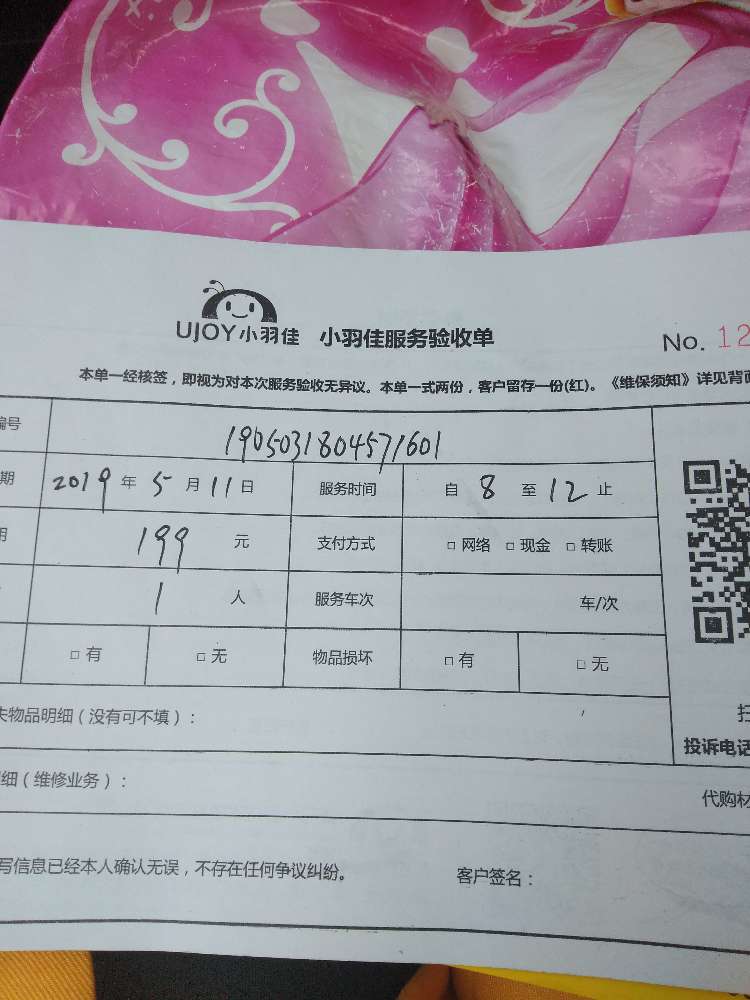 UJOY小羽佳 小羽佳服务验收单 No. 12
本单一经核签，即视为对本次服务验收无异议。本单一式两份，客户留存一份(红)。《维保须知》详见背面
编号 1905031804571601
期 2019 年 5 月 11 日 服务时间 自 8 至 12 止
用 199 元 支付方式 □ 网络 □ 现金 □ 转账
1 人 服务车次 车/次
□ 有 □ 无 物品损坏 □ 有 □ 无
失物品明细（没有可不填）： 扫
投诉电话
细（维修业务）： 代购材
写信息已经本人确认无误，不存在任何争议纠纷。 客户签名：